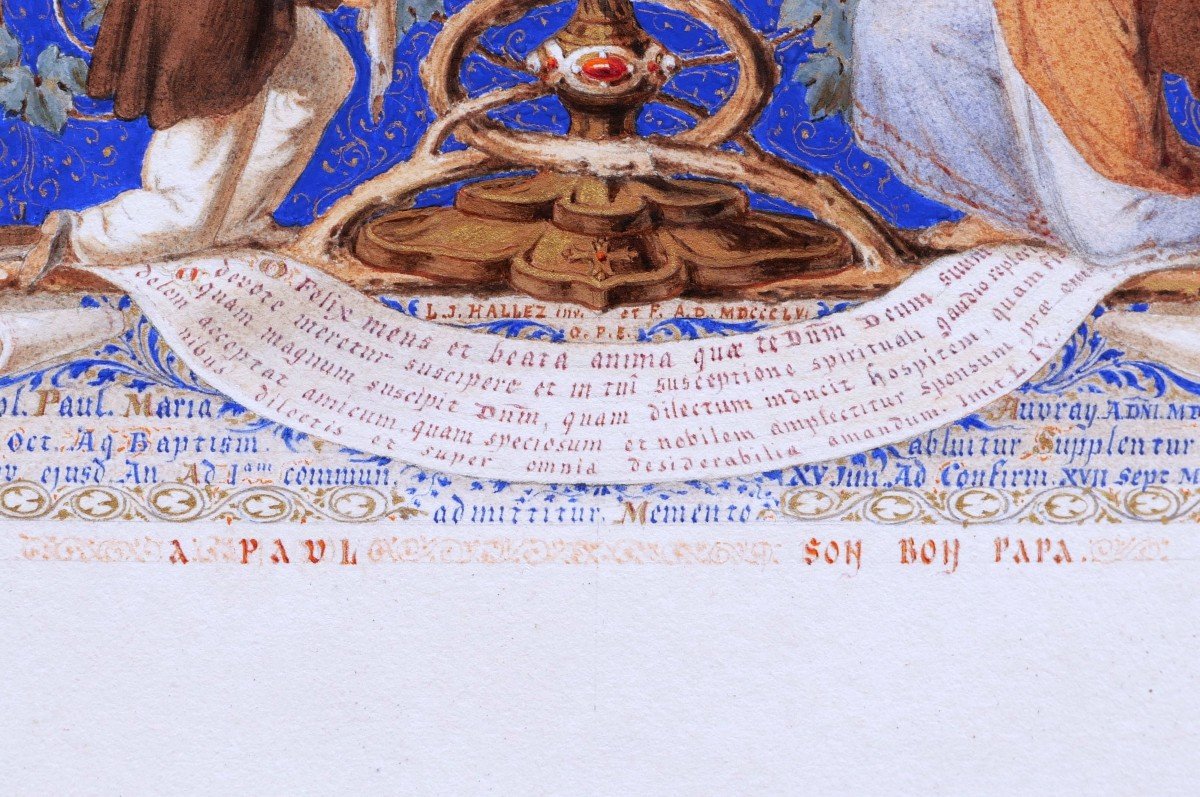 L.J. HALLEZ inv. et F. A.D. MDCCCLV.
O.P.E.
O Felix mens et beata anima quæ te Dñm Deum suum
devote meretur suscipere et in tui susceptione spirituali gaudio repleri
O quam magnum suscipit Dñm, quam dilectum inducit hospitem, quam
delem acceptat amicum, quam speciosum et nobilem amplectitur sponsum præ
nibus dilectis et super omnia desiderabilia amandum. Imit L. IV.
ol. Paul. Maria Auvray. A DÑI. MD
Oct. Aq Baptism abluitur Supplentur
ejusd. An. Ad Iam commun. XV Jun. Ad Confirm. XVII Sept M
admittitur. Memento
A PAUL SON BON PAPA.